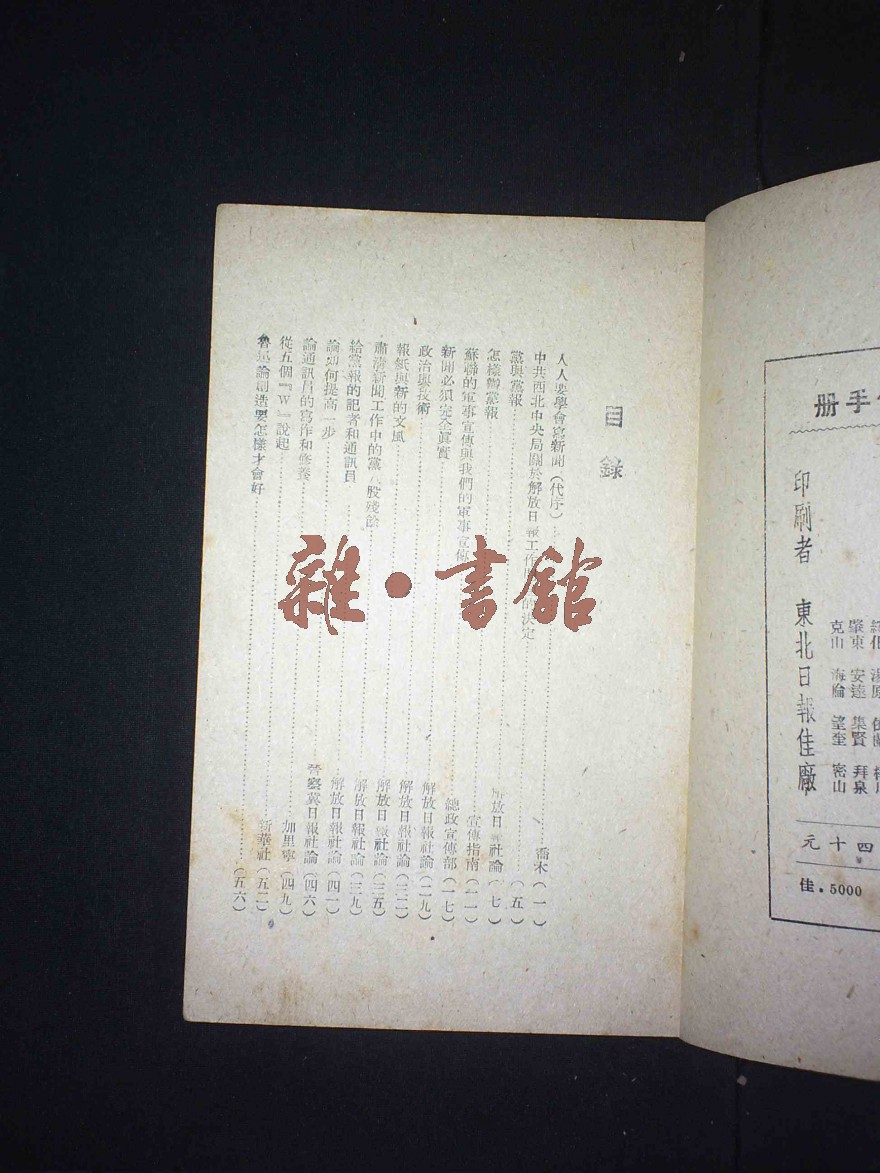 目錄
人人要學會寫新聞(代序)……喬木(一)
中共西北中央局關於解放日報工作 的決定……(五)
黨與黨報……解放日報社論(七)
怎樣辦黨報……宣傳指南(一一)
蘇聯的軍事宣傳與我們的軍事宣傳……總政宣傳部(一七)
新聞必須完全眞實……解放日報社論(二九)
政治與技術……解放日報社論(三二)
報紙與新的文風……解放日報社論(三五)
肅淸新聞工作中的黨八股殘餘……解放日報社論(三九)
給黨報的記者和通訊員……解放日報社論(四一)
論如何提高一步……晉察冀日報社論(四六)
論通訊員的寫作和修養……加里寧(四九)
從五個「W」說起……新華社(五二)
魯迅論創造要怎樣才會好……(五六)
雜·書館
手册
肇東 安達 集賢 拜泉
克山 海倫 望奎 密山
印刷者 東北日報佳廠
四十元
佳.5000